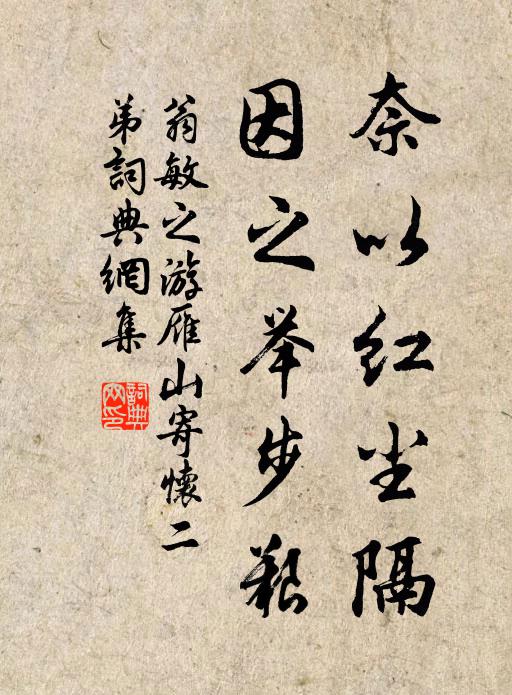 奈以红尘隔
因之举步艰
翁敏之游雁山寄懷二
弟詞典網集
詞典网印